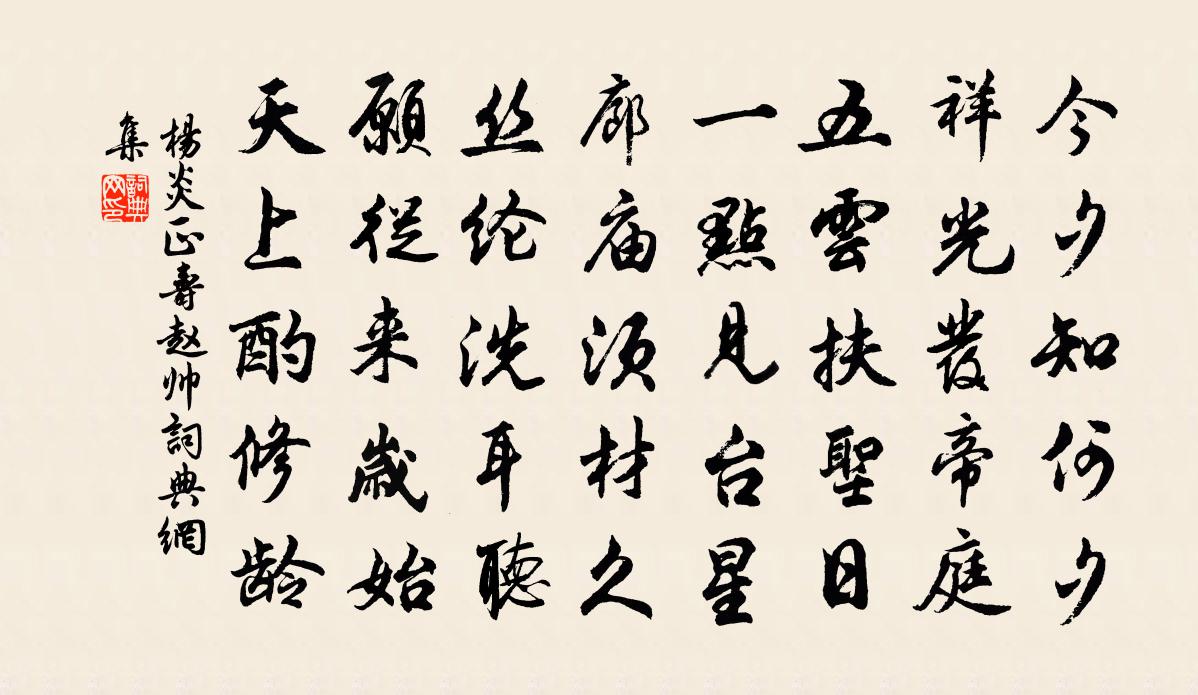 今夕知何夕
祥光發帝庭
五雲扶聖日
一點見台星
廊庙須材久
丝纶洗耳聽
願從来歲始
天上酌修龄
楊炎正壽赵帅詞典網
集
詞典
网印